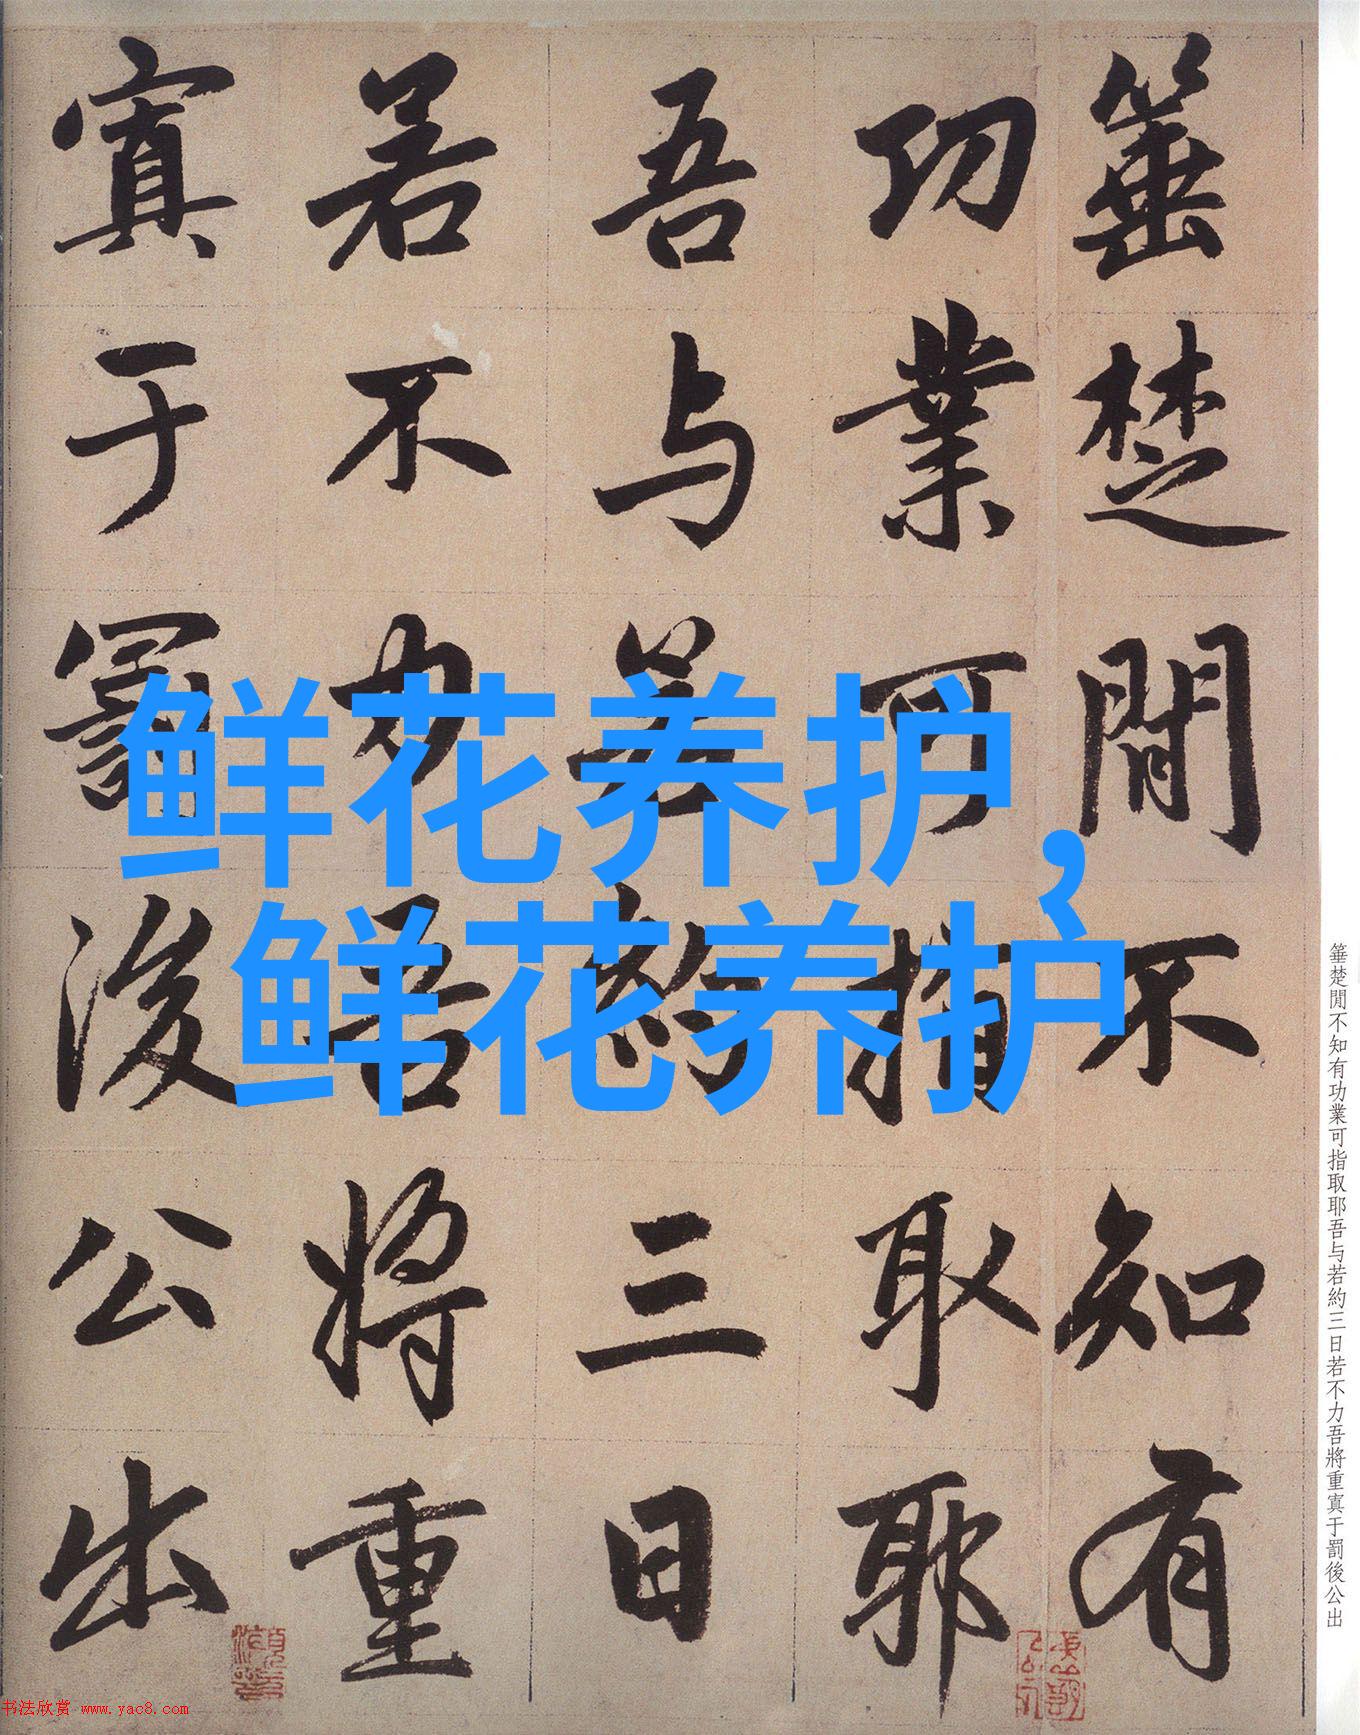 箠楚閒不知有
功業可指取耶
吾与若約三日
若不力吾將重
寘于罰後公出
鲜花养护,
鲜花养护
箠楚閒不知有功業可指取耶吾与若約三日若不力吾將重寘于罰後公出
书法欣赏 www.yac8.com